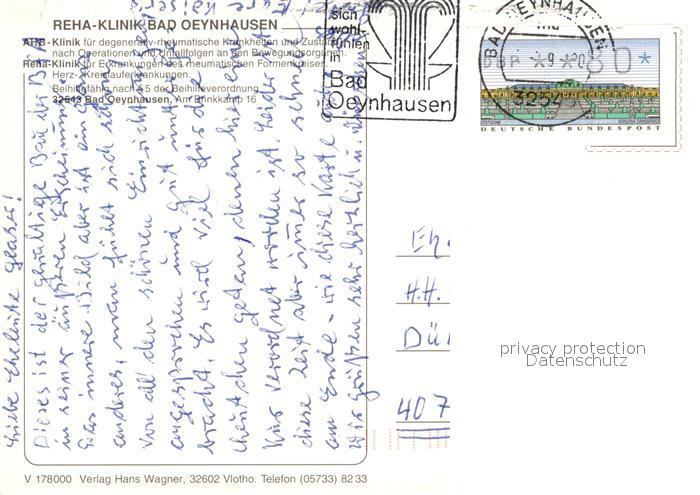 REHA-KLINIK BAD OEYNHAUSEN
AHB-Klinik für degenerativ-rheumatische Krankheiten und Zustand
nach Operationen und Unfallfolgen an den Bewegungsorganen.
Reha-Klinik für Erkrankungen des rheumatischen Formenkreises
Herz-, Kreislauferkrankungen.
Beihilfefähig nach § 5 der Beihilfeverordnung
32543 Bad Oeynhausen, Am Brinkkamp 16
sich
wohl-
fühlen
in
Bad
Oeynhausen
BAD OEYNHAUSEN
32543
DBP
80*
DEUTSCHE BUNDESPOST
Liebe Eheleute Glaser!
Dieses ist der gewaltige Bau der
in seiner äußeren Erscheinung.
Das innere Bild aber ist ein ganz
anderes, man fühlt sich schon
von all den schönen Einrichtungen
angesprochen und gut
bracht. Es wird viel für die
getan, denen hier eine
Kur verordnet worden ist. Leider ist
diese Zeit aber immer so schnell
am Ende - wie diese Karte auch.
Wir grüßen sehr herzlich
Eh.
H.H.
Dü
407
privacy protection
Datenschutz
V 178000 Verlag Hans Wagner, 32602 Vlotho. Telefon (05733) 82 33